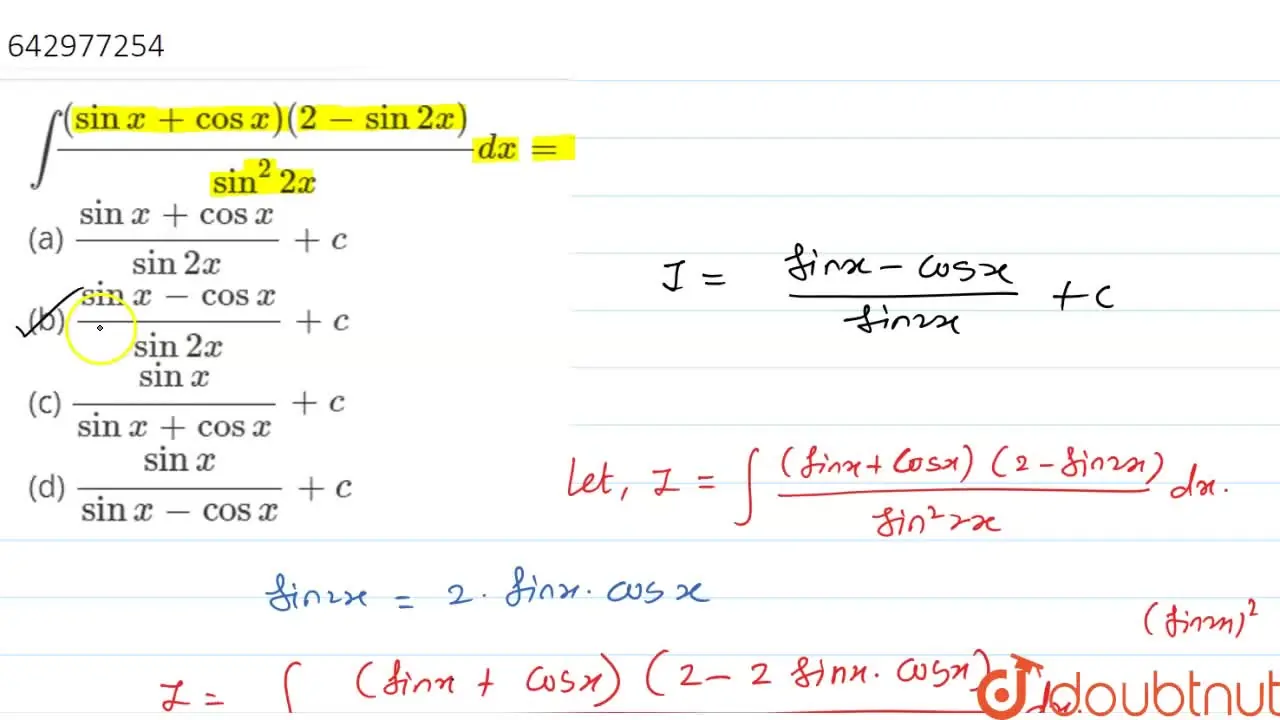 642977254
∫ (sin x + cos x)(2 − sin 2x) / sin² 2x dx =
(a) sin x + cos x / sin 2x + c
(b) sin x − cos x / sin 2x + c
(c) sin x / sin x + cos x + c
(d) sin x / sin x − cos x + c
I = sinx − cosx / sin2x + c
Let, I = ∫ (sinx + cosx) (2 − sin2x) / sin² 2x dx.
sin2x = 2. sinx. cosx
(sin2x)²
I = ∫ (sinx + cosx) (2 − 2 sinx. cosx) dx.
doubtnut